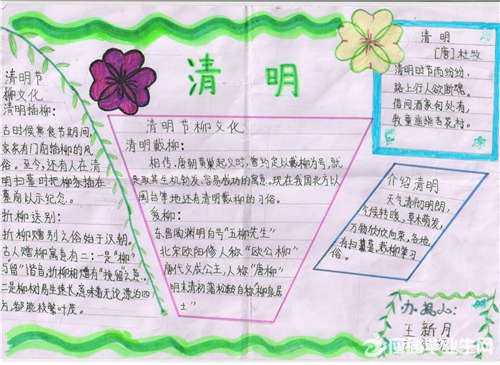 清明
清明节
柳文化
清明插柳:
古时候寒食节期间,
家家有门前插柳的风
俗。至今,还有人在清
明扫墓时把柳条插在
墓前以示纪念。
折柳送别:
折柳赠别之俗始于汉朝。
古人赠柳寓意有二:一是"柳"
与"留"谐音,折柳相赠有"挽留"之意
二是柳树易生速长,意味着无论漂泊四
方,都能枝繁叶茂。
清明节柳文化
清明戴柳:
相传,唐朝黄巢起义时,曾约定以戴柳为号,就
是取其生机勃发,容易成功的寓意。现在我国北方以
国台等地还有清明戴柳的习俗。
爱柳:
东晋陶渊明自号"五柳先生"
北宋欧阳修人称"欧公柳"
唐代文成公主,人称"唐柳"
明末清初蒲松龄自称"柳泉居
士"
清明
[唐]杜牧
清明时节雨纷纷,
路上行人欲断魂。
借问酒家何处有,
牧童遥指杏花村。
介绍清明
天气清彻明朗,
气候转暖,草木萌发,
万物欣欣向荣,各地
有扫墓,戴柳等习
俗。
办报人:
王新月